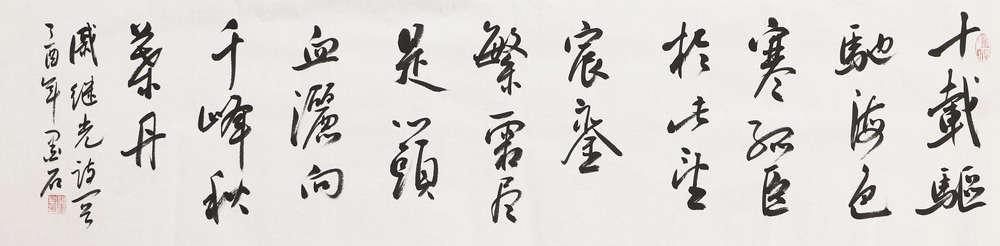 十載驅
馳海色
寒孤臣
於此望
宸鑾
繁霜尽
是心頭
血灑向
千峰秋
葉丹
戚继光诗一首
丁酉年墨石